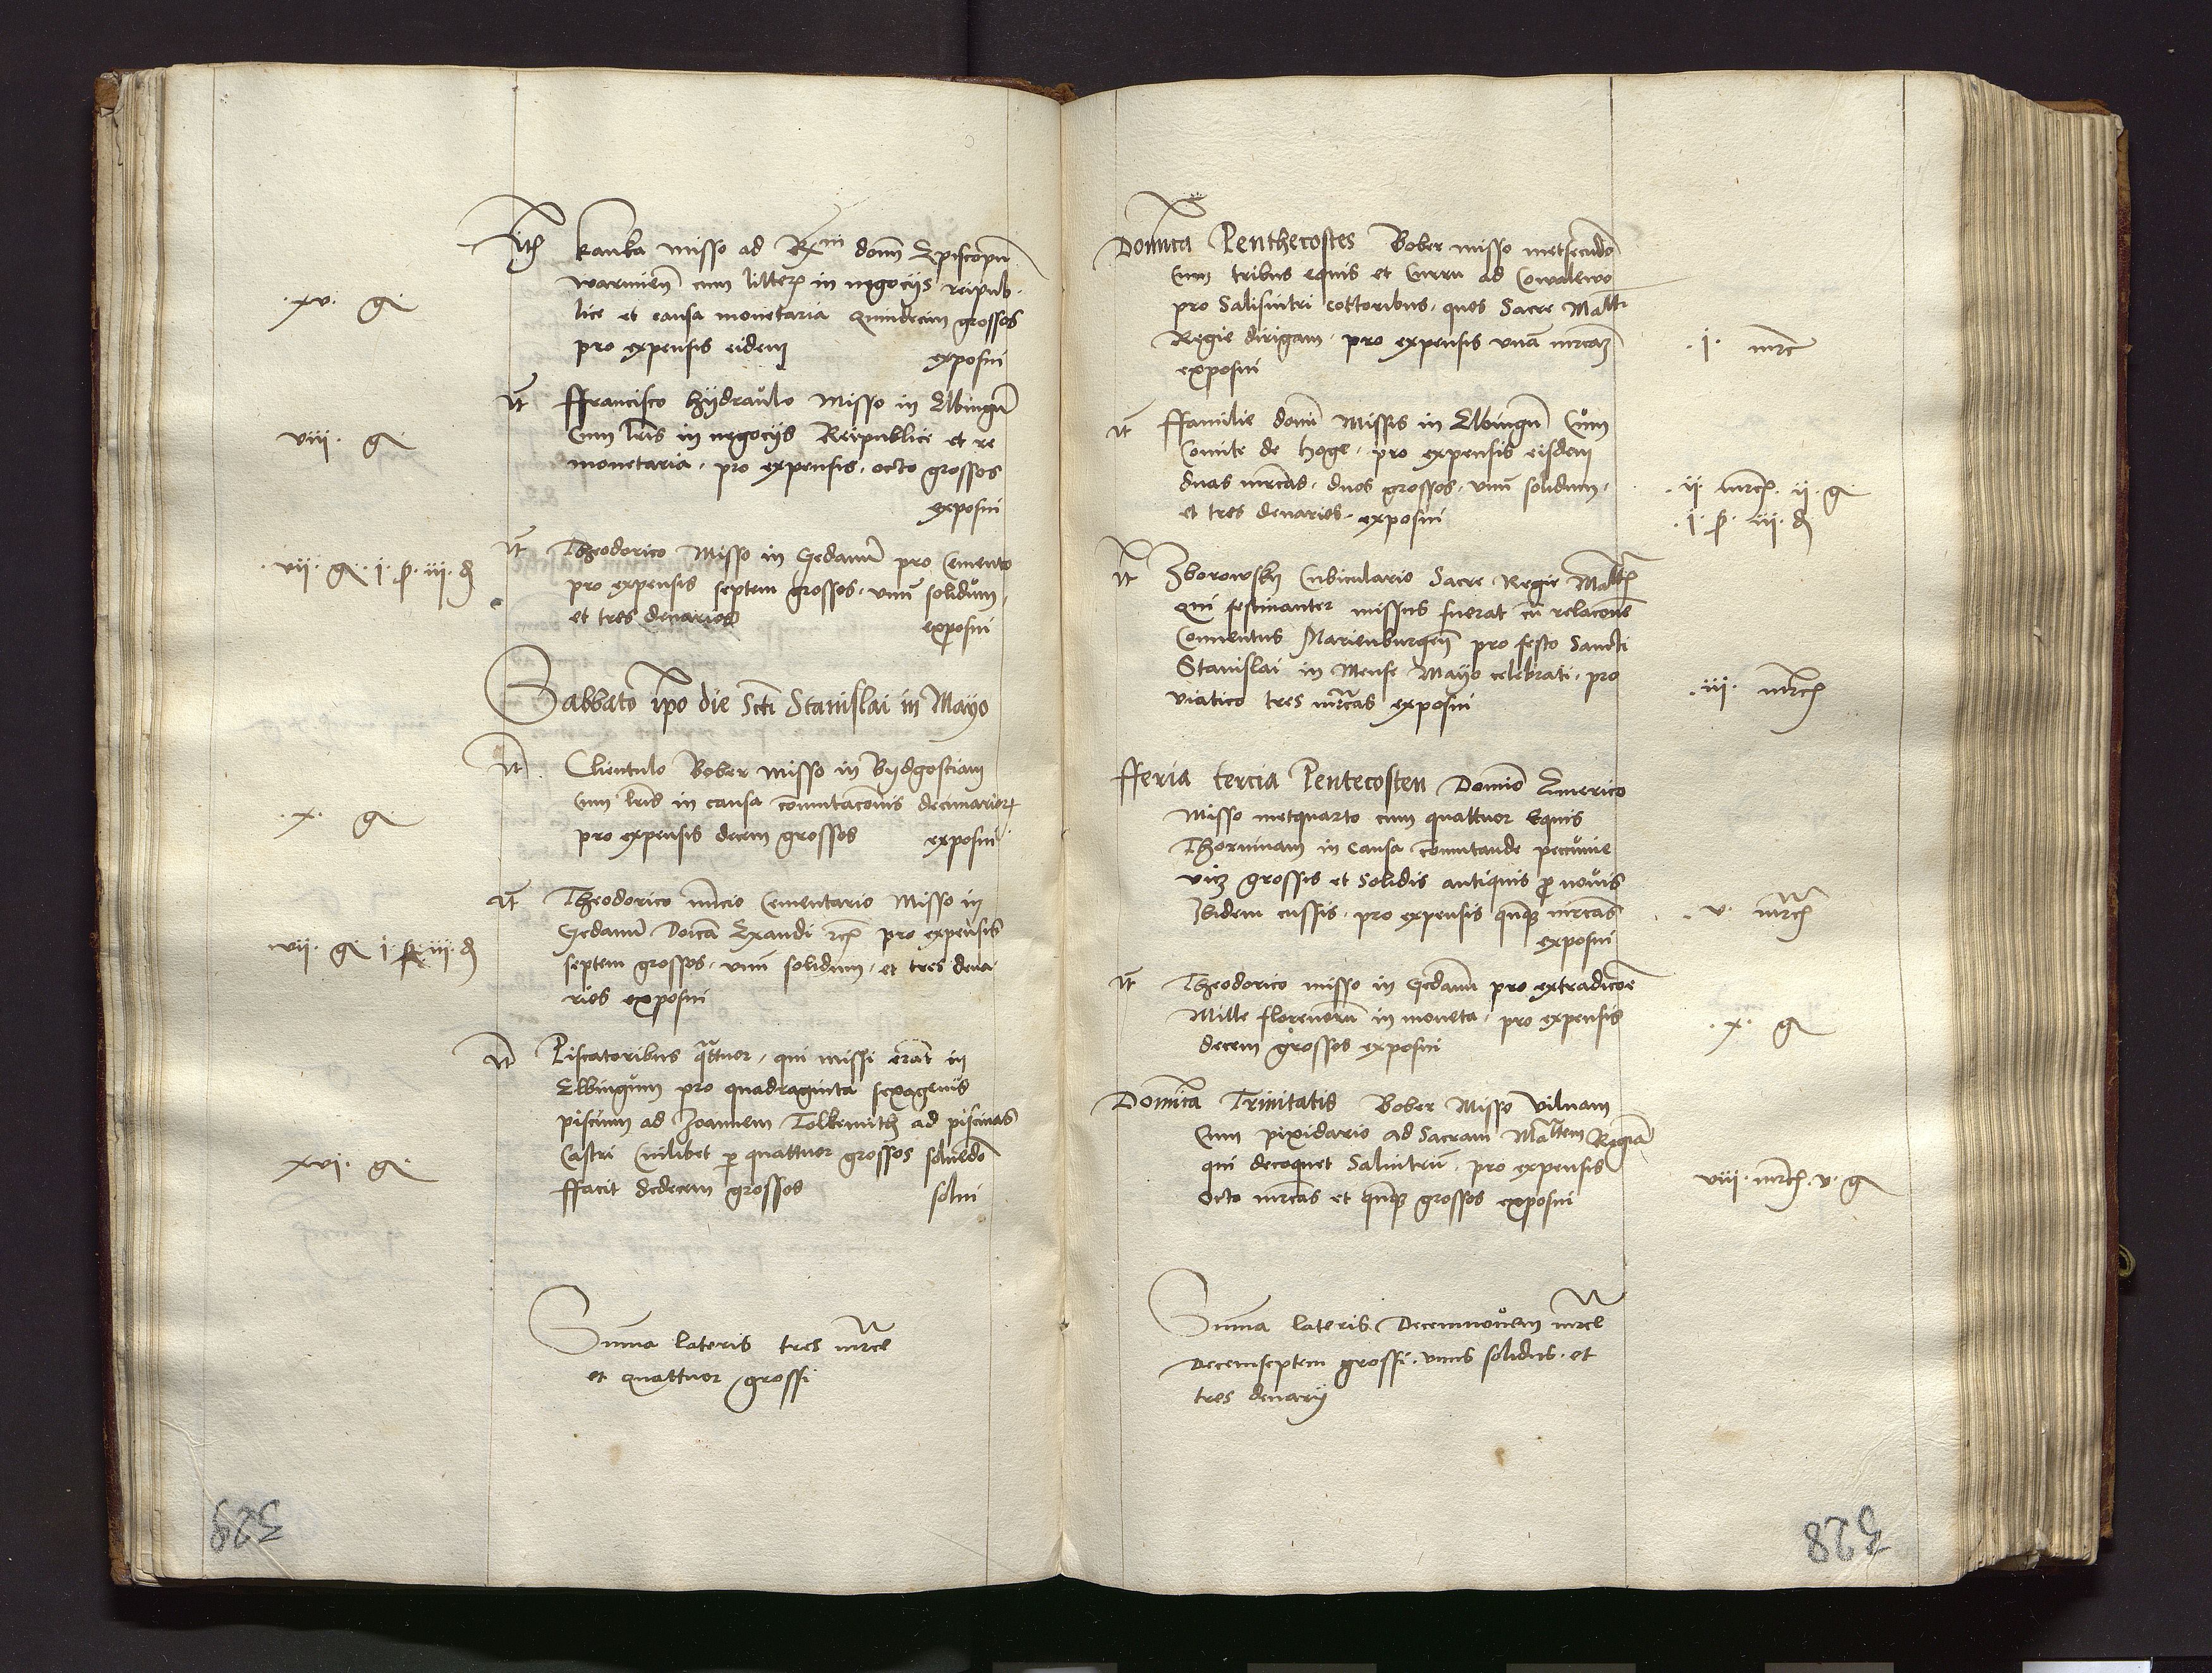 Itẽ kauka misso ad Rx̃m dom̃ Episcopũ
warmieñ cum litterꝭ in negocijs reipub-
.xv. gͣ.
lice et causa monetaria quindecim grossos
pro expensis eidem exposui
It̃ ffrancisco hydraulo Misso in Elbingũ
viii. gͣ.
Cum lr̃is in negocijs Reipublice et re
monetaria, pro expensis, octo grossos
exposui
It̃ Theodorico Misso in Gedanũ pro Cemento
.vii. gͣ. i. ß. iii. ₰
pro expensis septem grossos, vnũ solidum,
et tres denarios exposui
Sabbato ipõ die Sct̃i Stanislai in Mayo
It̃. Clientulo Bober misso in Bydgosciam
Cum lr̃is in causa com̃utacom̃is denariorꝝ
.x. gͣ.
pro expensis decem grossos exposui
It̃ Theodorico nũcio Cementario Misso in
Gedanũ Doĩca Exaudi rc̃ꝭ pro expensis
vii. gͣ i. ß iii. ₰
septem grossos, vnũ solidum, et tres dena
rios exposui
It̃ Piscatoribus qᷓttuor, qui missi erãt in
Elbingum pro quadraginta sexagenis
piscium ad Joannem Tolkemith ad piscinas
xvi. gͣ.
Castri Cuilibet ꝑ quattuor grossos soluẽdo
ffacit sedecem grossos solui
Sum̃a lateris tres mr̃ce
et quattuor grossi
329
Domĩca Penthecostes Bober misso metsecũdo
Cum tribus equis et Curru ad Cowalewo
pro Salisnitri Coctoribus, quos Sacre Mat̃ti
Regie dirigam, pro expensis vnã mrcaz̃
.i. mrc̃
exposui
It̃ ffamilie domĩ Missis in Elbingũ Cum
Comite de hoge, pro expensis eisdem
duas mr̃cas, duos grossos, vnũ solidum,
.ii. mrcꝭ. ii. gͣ
et tres denarios, exposui
.i. ß. iii. ₰
It̃ Zborowsky Cubiculario Sacre Regie Mat̃tꝭ
Qui festinanter missus fuerat cũ relacoñe
Conuentus Marienburgeñ pro festo Sancti
Stanislai in Mense Mayo celebrati, pro
.iii. mr̃cꝭ
viatico tres mr̃cas exposui
fferia tercia Pentecosten Domĩo Emerico
Misso metquarto cum quattuor Equis
Thoruniam in Causa com̃utande peccunie
vicz grossis et Solidis antiquis ꝓ nouis
Ibidem cussis, pro expensis quĩqꝫ mrcas
.v. mr̃cꝭ
exposui
It̃ Theodorico misso in Gedanũ pro extradicoẽ
Mille florenorũ in moneta, pro expensis
.x. gͣ
decem grossos exposui
Domĩca Trinitatis Bober Misso Vilnam
Cum pixidario ad Sacram Mat̃tem Regiã
qui decoquet Salnitrũ, pro expensis
viii. mrcꝭ. v. gͣ
Octo mr̃cas et quĩqꝫ grossos exposui
Sum̃a lateris Decemnouem mr̃ce
Decemseptem grossi, vnus solidus, et
tres denarij
328